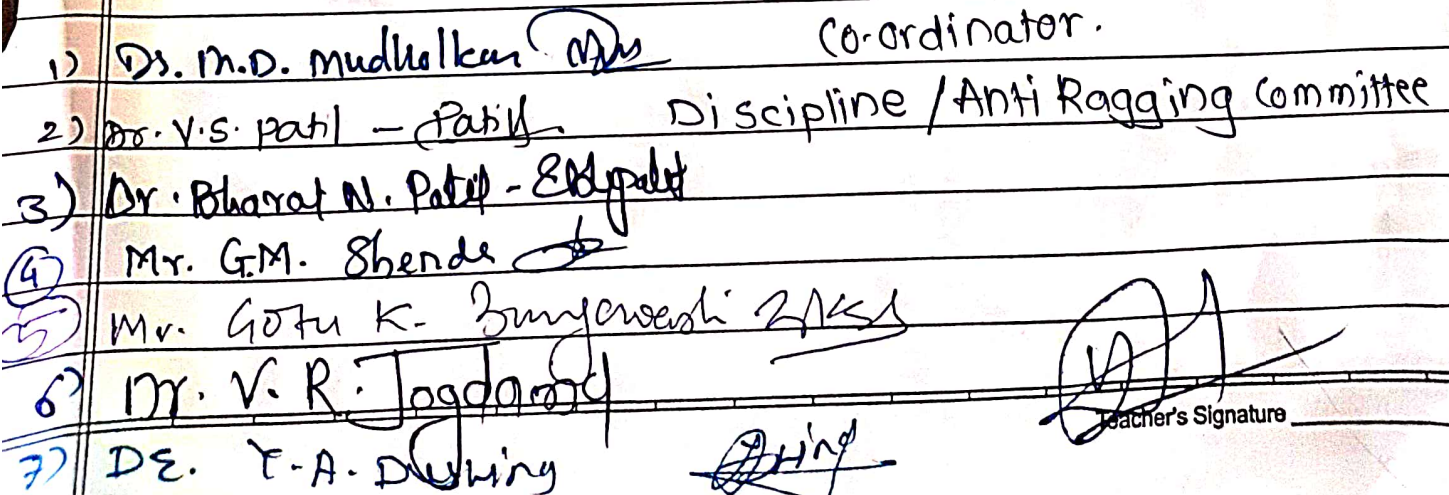 1) Dr. M.D. Mudholkar Co-ordinator.
2) Dr. V.S. Patil - Patil Discipline / Anti Ragging Committee
3) Dr. Bharat N. Patil -
4 Mr. G.M. Shende
5) Mr. Gotu K.
6) Dr. V. R. Jogdand
Teacher's Signature
7) Dr. Y.A.